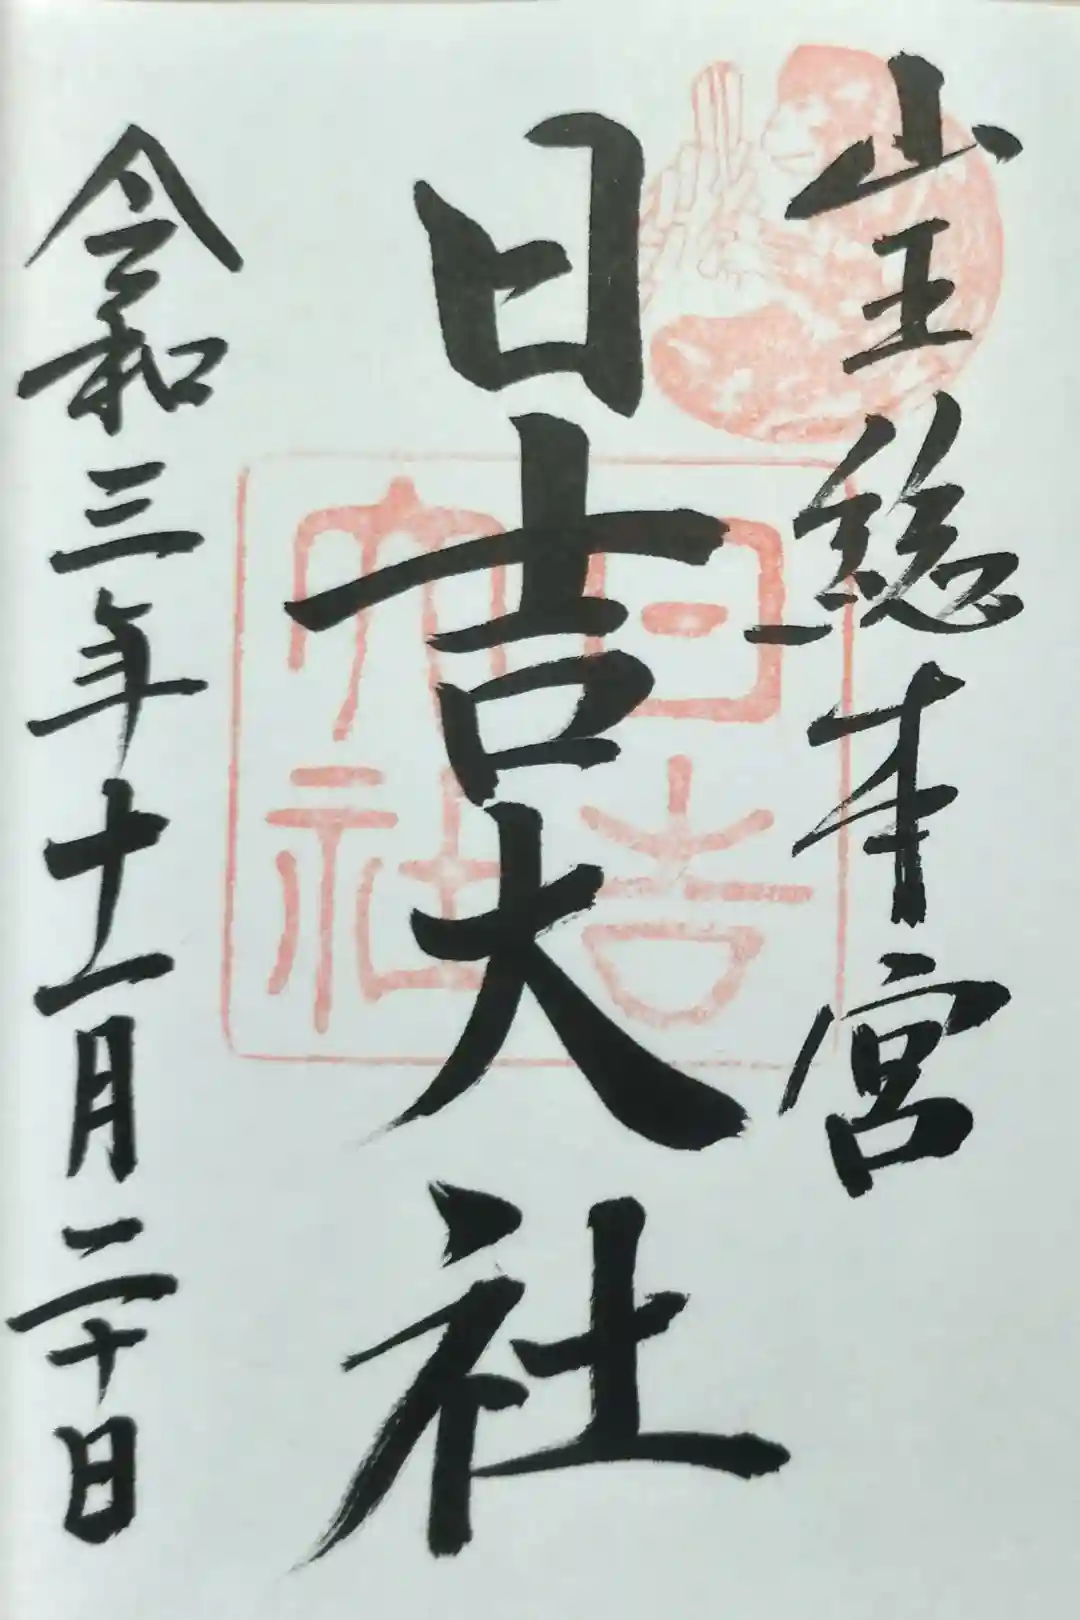 山王総本宮
日吉大社
令和三年十一月二十日
日吉
大社